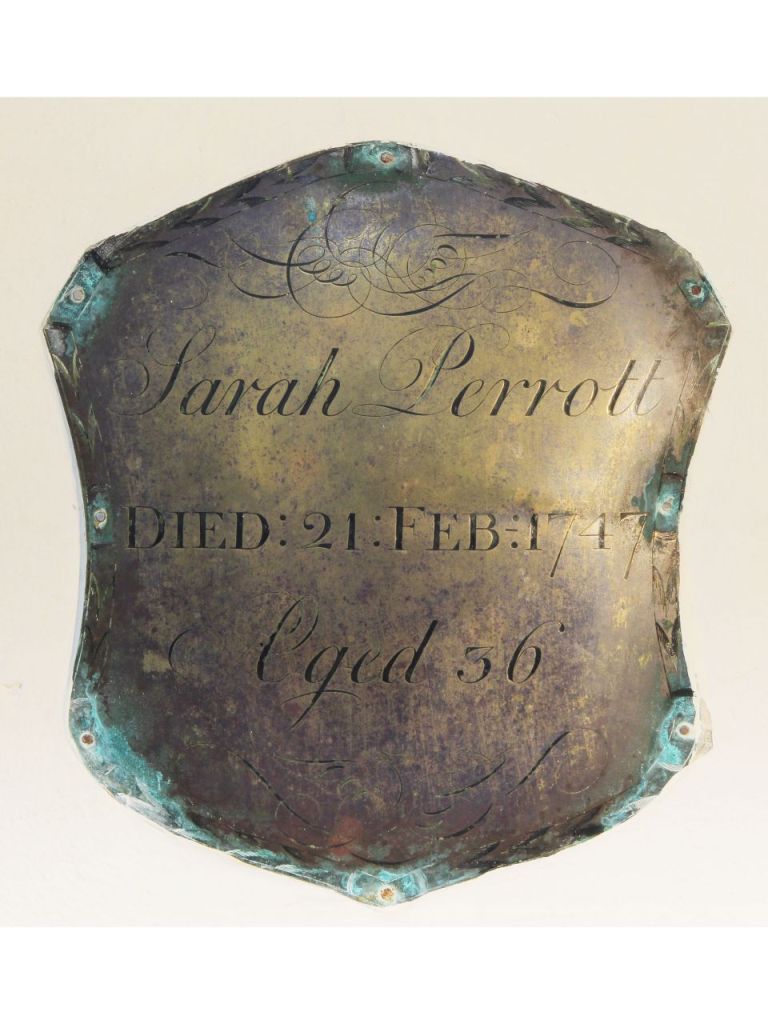 Sarah Perrott
DIED: 21: FEB: 1747
Aged 36